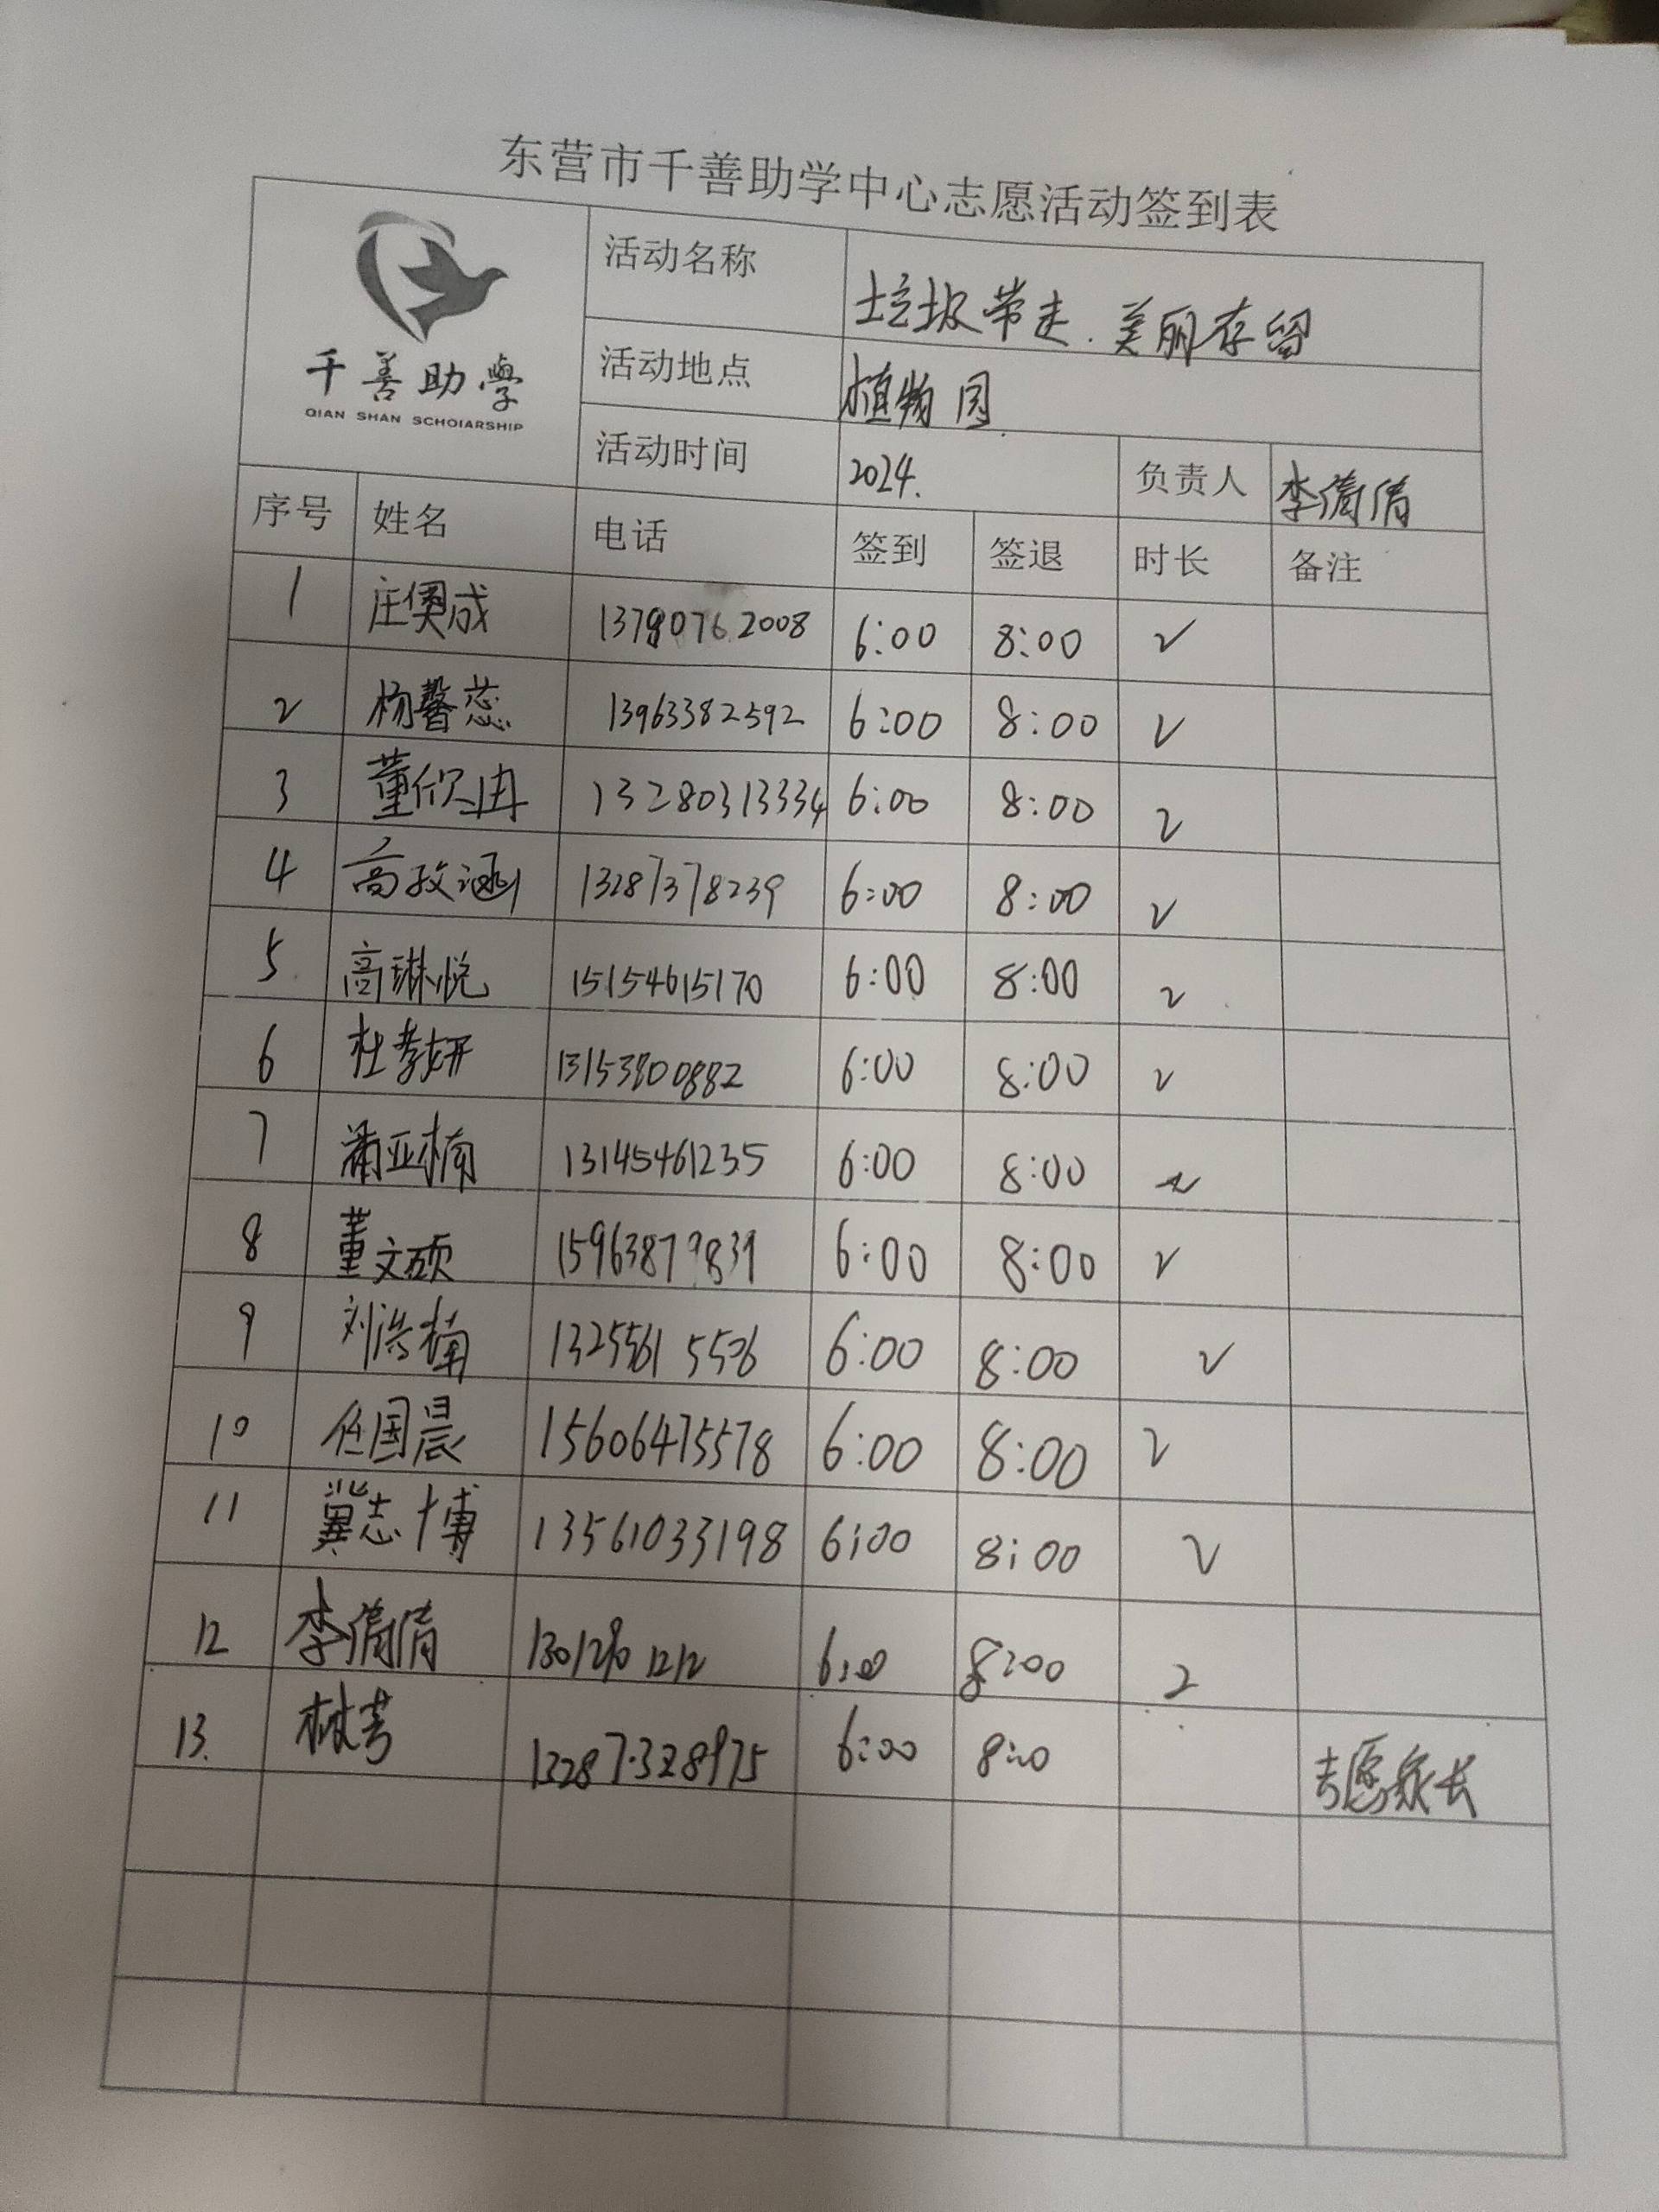 东营市千善助学中心志愿活动签到表
千善助學
QIAN SHAN SCHOIARSHIP
活动名称 垃圾带走.美丽存留
活动地点 植物园
活动时间 2024. 负责人 李倩倩
序号 姓名 电话 签到 签退 时长 备注
1 庄奥成 2008 6:00 8:00 2
2 杨馨蕊 13963382592 6:00 8:00 2
3 董欣冉 13280313334 6:00 8:00 2
4 高孜涵 13287378239 6:00 8:00 2
5 高琳悦 15154615170 6:00 8:00 2
6 杜孝妍 13153800882 6:00 8:00 2
7 蒲亚楠 13145461235 6:00 8:00 2
8 董文硕 15963879839 6:00 8:00 2
9 刘浩楠 6:00 8:00 2
10 任国晨 15606475578 6:00 8:00 2
11 冀志博 13561033198 6:00 8:00 2
12 李倩倩 1212 6:00 8:00 2
13. 13287328975 6:00 8:00 志愿家长